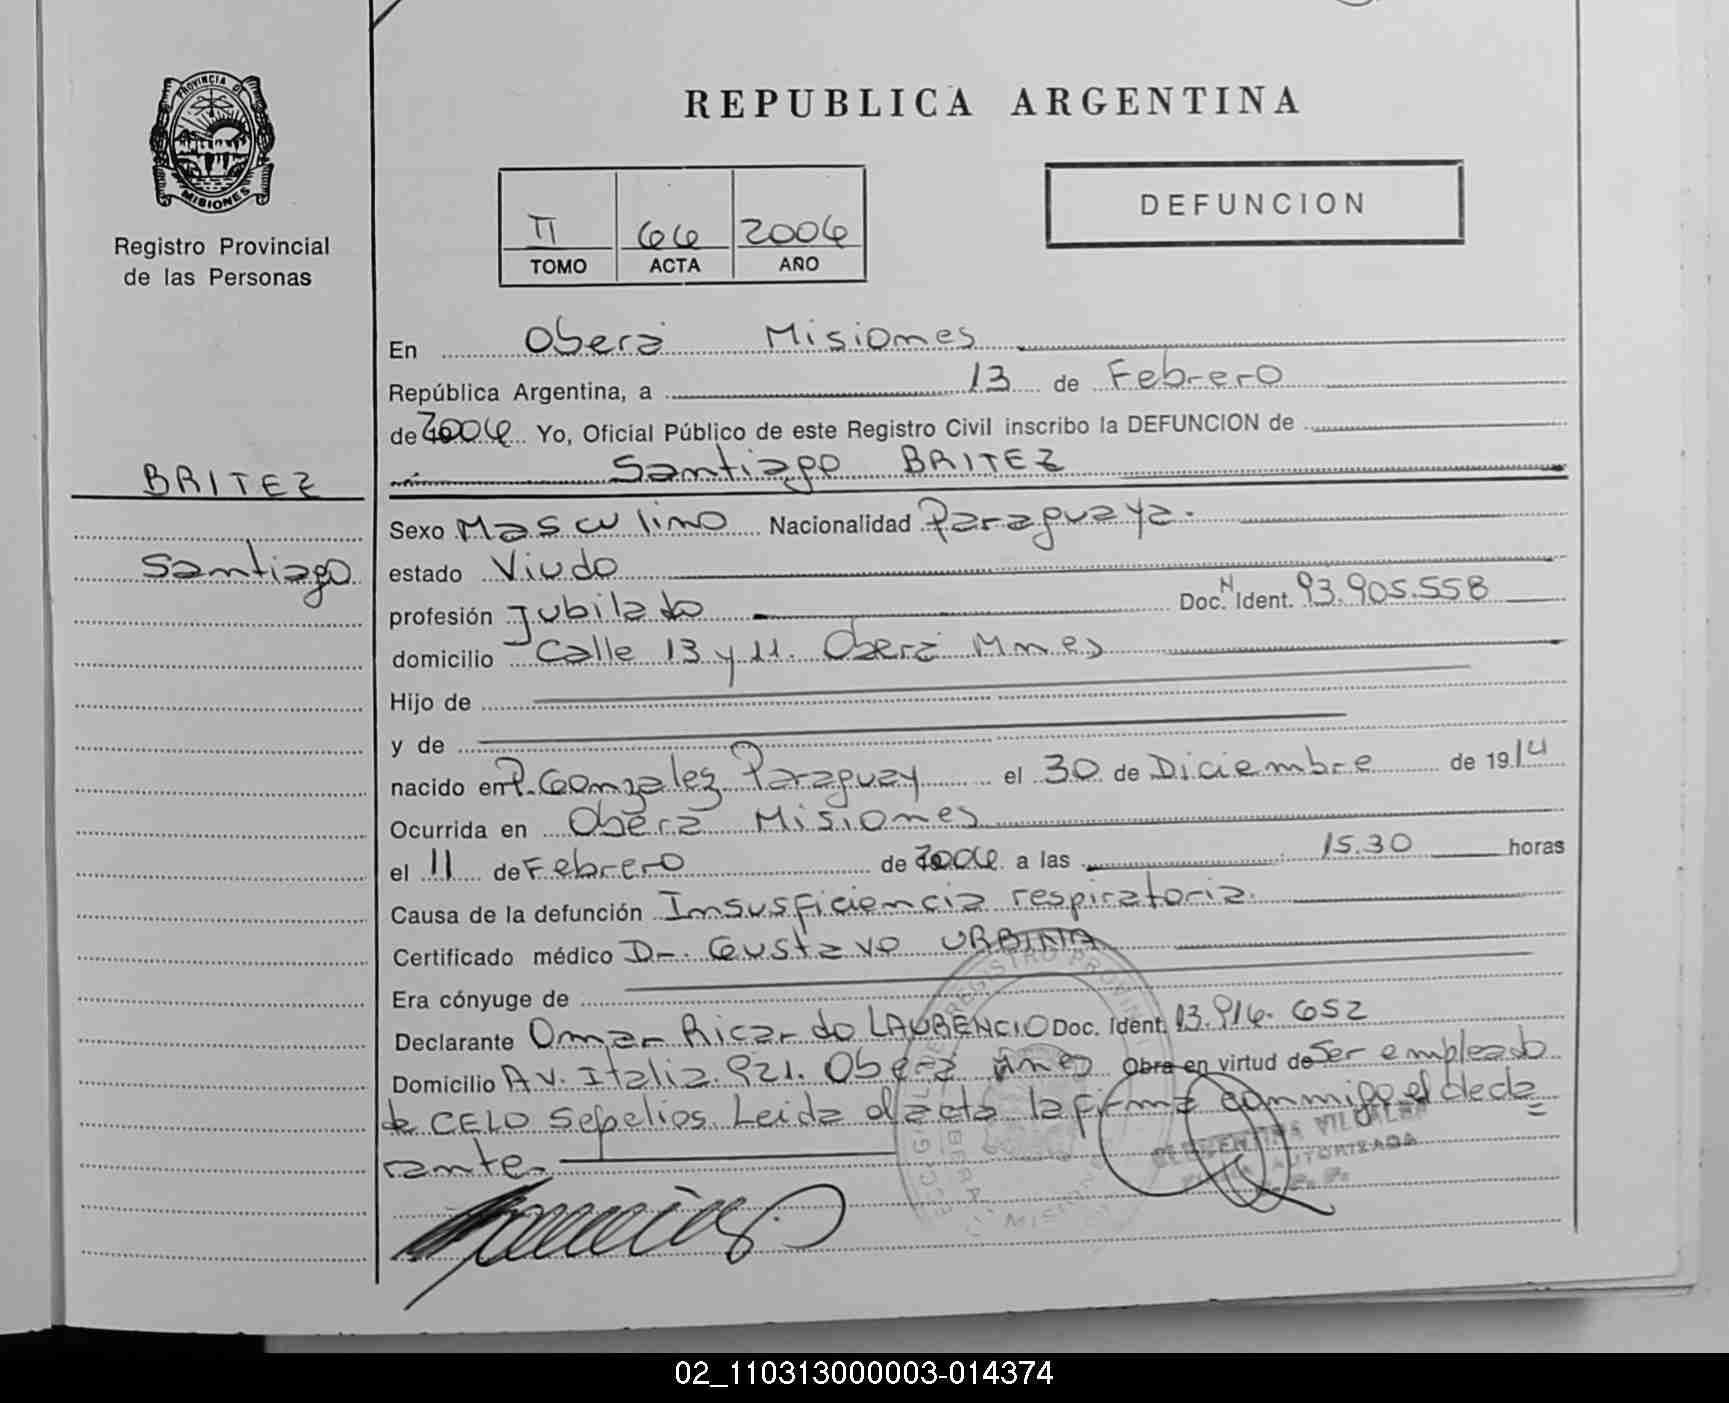 PROVINCIA DE
MISIONES
Registro Provincial
de las Personas
BRITEZ
Santiago
REPUBLICA ARGENTINA
DEFUNCION
TI 66 2006
TOMO ACTA AÑO
En Oberá Misiones
República Argentina, a 13 de Febrero
de 2006 Yo, Oficial Público de este Registro Civil inscribo la DEFUNCION de
Santiago BRITEZ
Sexo Masculino Nacionalidad Paraguaya.
estado Viudo
profesión Jubilado Doc. N Ident. 93.905.558
domicilio Calle 13 y 11. Oberá Mnes
Hijo de
y de
nacido en P. Gonzalez Paraguay el 30 de Diciembre de 1914
Ocurrida en Oberá Misiones
el 11 de Febrero de 2006 a las 15.30 horas
Causa de la defunción Insusficiencia respiratoria.
Certificado médico Dr. Gustavo URBINA
Era cónyuge de
Declarante Omar Ricardo LAURENCIO Doc. Ident. 13.916.652
Domicilio AV. Italia. 921. Oberá Mnes Obra en virtud de Ser empleado
de CELO Sepelios. Leida el acta la firma conmigo el decla
rante.
02_110313000003-014374